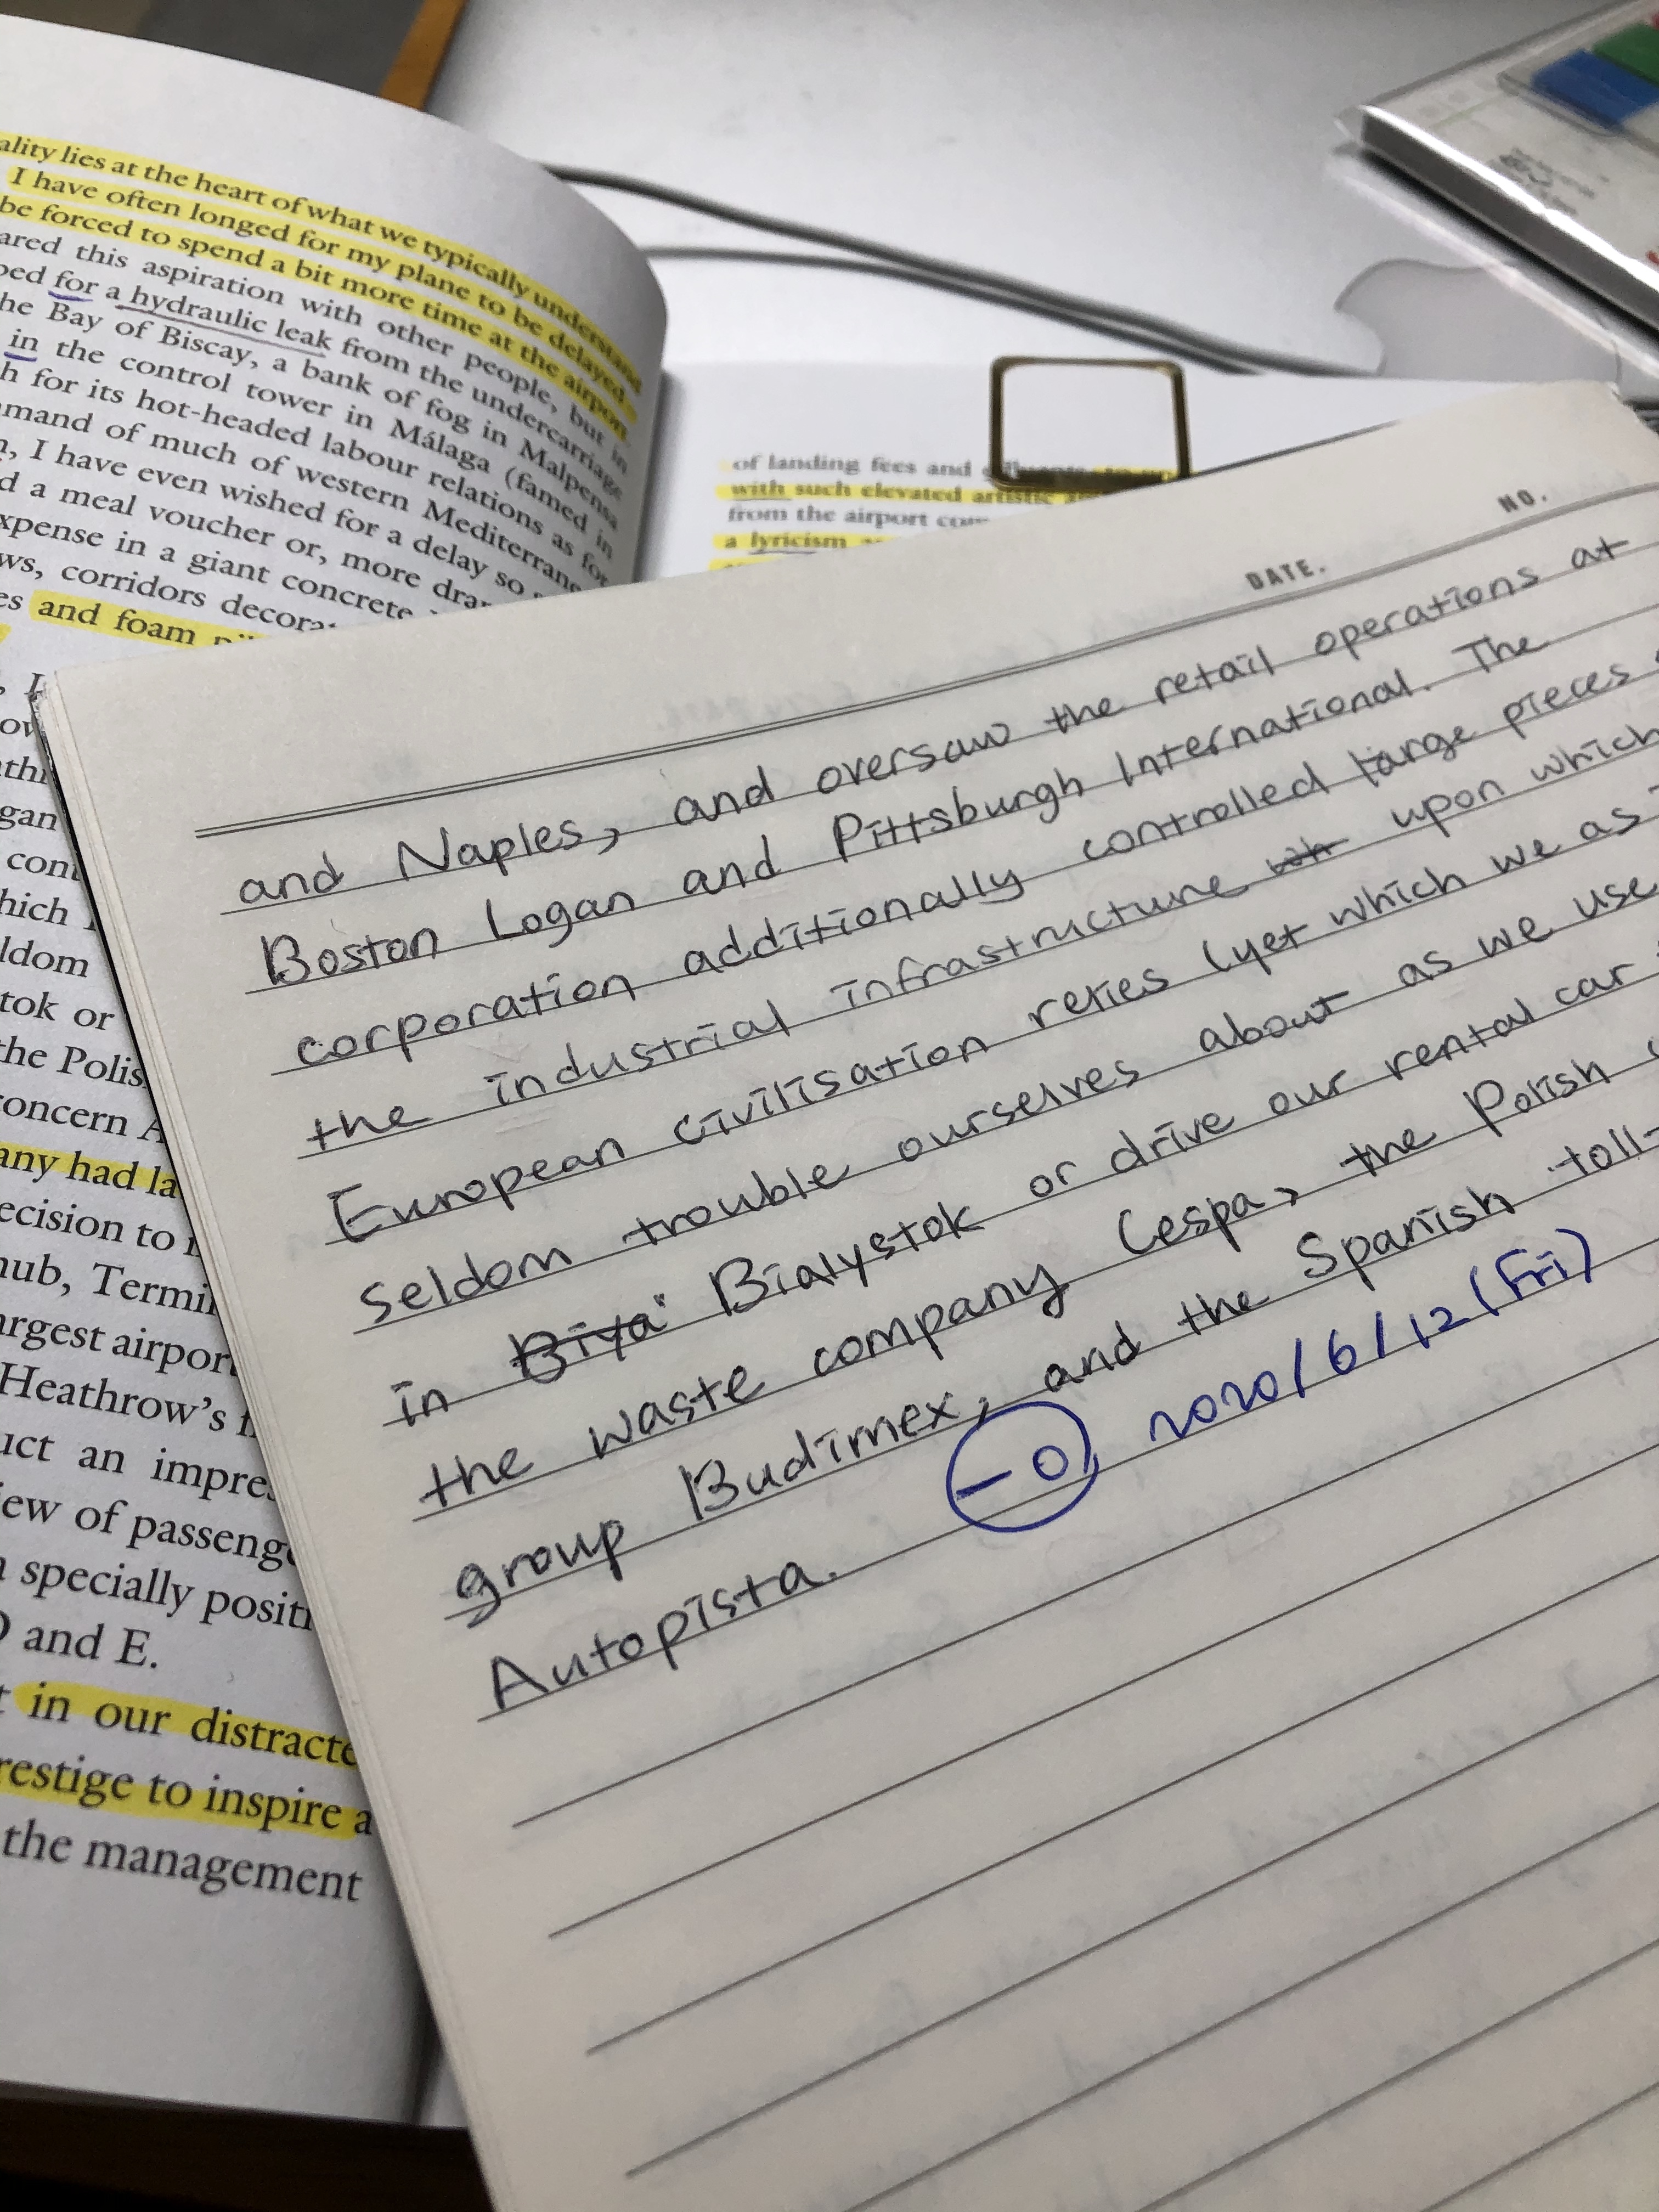 ality lies at the heart of what we typically understand
I have often longed for my plane to be delayed
be forced to spend a bit more time at the airport.
ared this aspiration with other people, but in
ped for a hydraulic leak from the undercarriage
he Bay of Biscay, a bank of fog in Malpensa
in the control tower in Málaga (famed in
h for its hot-headed labour relations as for
mmand of much of western Mediterrane
, I have even wished for a delay so
d a meal voucher or, more dra
xpense in a giant concrete
ws, corridors decora
es and foam
ov
gan
hich
ldom
tok or
the Polis
oncern A
any had la
ecision to
hub, Termi
argest airpor
Heathrow's
uct an impres
iew of passeng
specially positi
D and E.
t in our distracte
restige to inspire a
the management
of landing fees and
with such elevated artistic
from the airport com
a lyricism
NO.
DATE.
and Naples, and oversaw the retail operations at
Boston Logan and Pittsburgh International. The
corporation additionally controlled large pieces
the industrial infrastructure wh upon which
European civilisation relies (yet which we as
seldom trouble ourselves about as we use
in Biya Bialystok or drive our rental car
the waste company Cespa, the Polish
group Budimex, and the Spanish toll-
Autopista.
-0, 2020/6/12 (Fri)